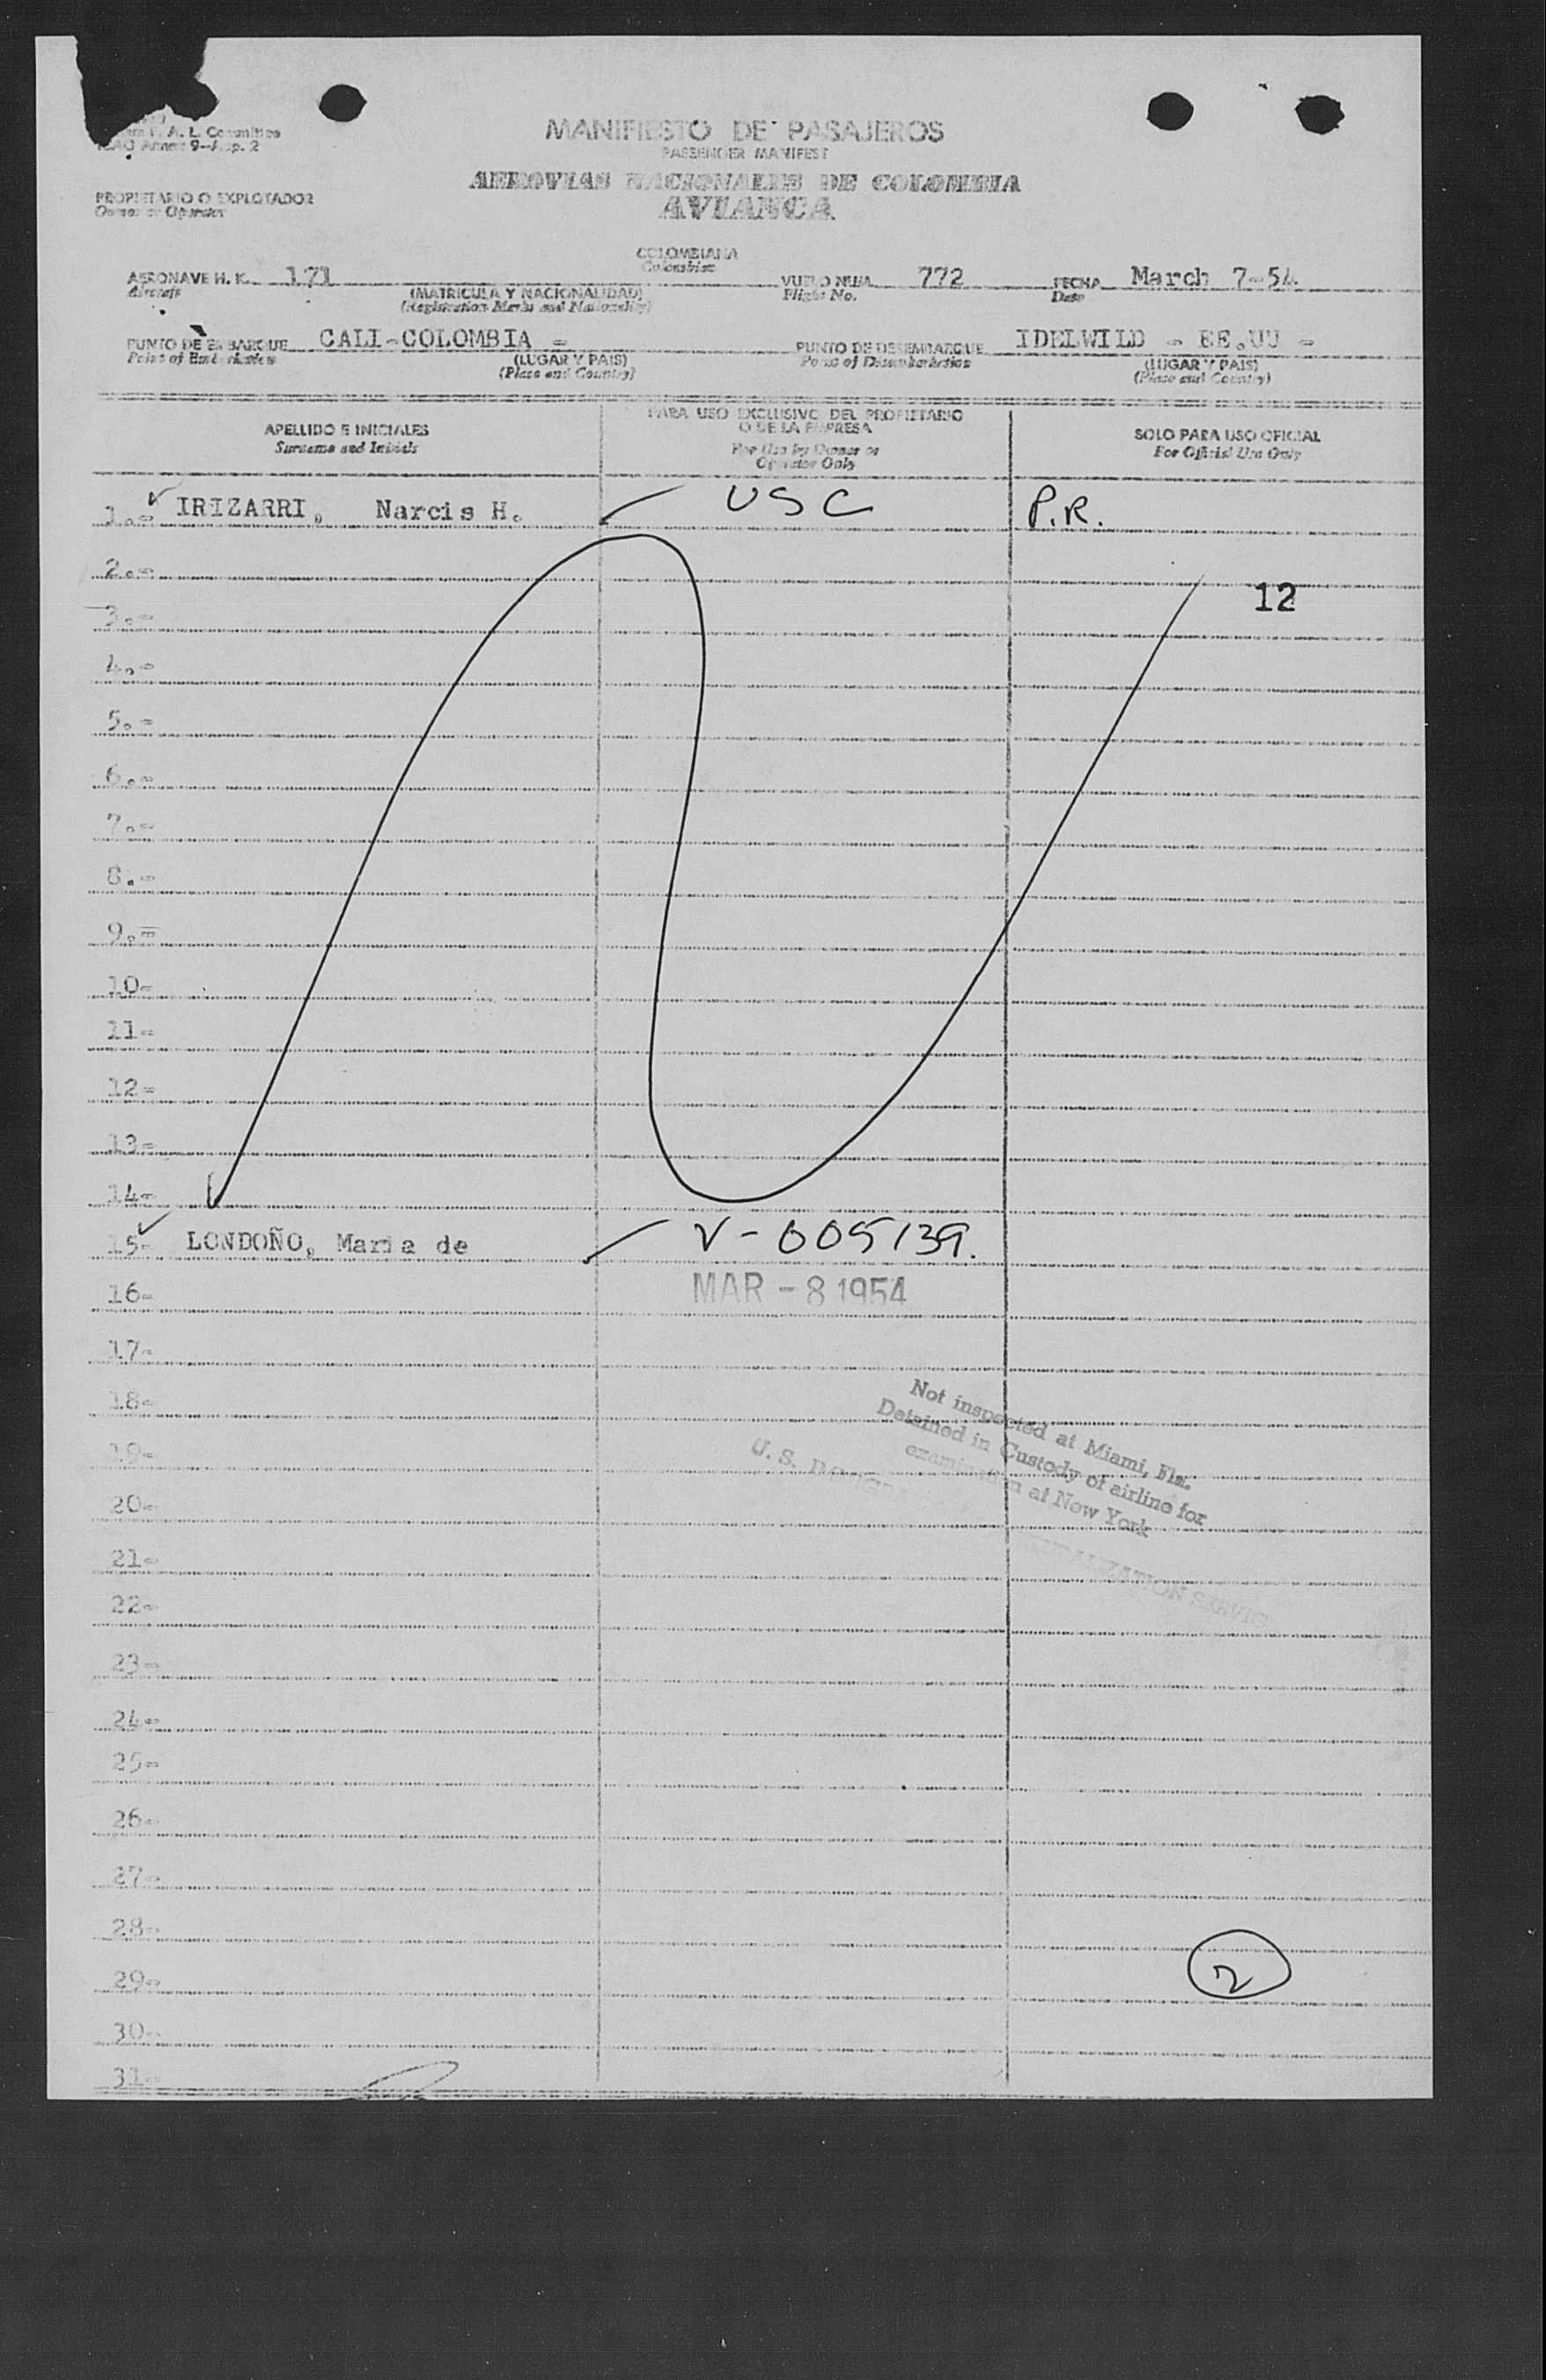 A. L. Committee
ICAO Annex 9-App. 2
MANIFIESTO DE PASAJEROS
PASSENGER MANIFEST
AEROVIAS NACIONALES DE COLOMBIA
AVIANCA
PROPIETARIO O EXPLOTADOR
Owner or Operator
COLOMBIANA
Colombian
AERONAVE H. K. 171 VUELO NUM. 772 FECHA March 7-54
Aircraft (MATRICULA Y NACIONALIDAD) Flight No. Date
(Registration Marks and Nationality)
PUNTO DE EMBARQUE CALI-COLOMBIA - PUNTO DE DESEMBARQUE IDELWILD - EE.UU -
Point of Embarkation (LUGAR Y PAIS) Point of Disembarkation (LUGAR Y PAIS)
(Place and Country) (Place and Country)
APELLIDO E INICIALES PARA USO EXCLUSIVO DEL PROPIETARIO O DE LA EMPRESA SOLO PARA USO OFICIAL
Surname and Initials For Use by Owner or Operator Only For Official Use Only
1.- IRIZARRI, Narcis H. USC P.R.
2.-
12
3.-
4.-
5.-
6.-
7.-
8.-
9.-
10-
11-
12-
13-
14-
15- LONDOÑO, Maria de V-005139.
16- MAR - 8 1954
17-
18-
Not inspected at Miami, Fla.
Detained in Custody of airline for
examination at New York
19-
U. S.
20-
21-
NATURALIZATION SERVICE
22-
23-
24-
25-
26-
27-
28-
29- 2
30-
31-